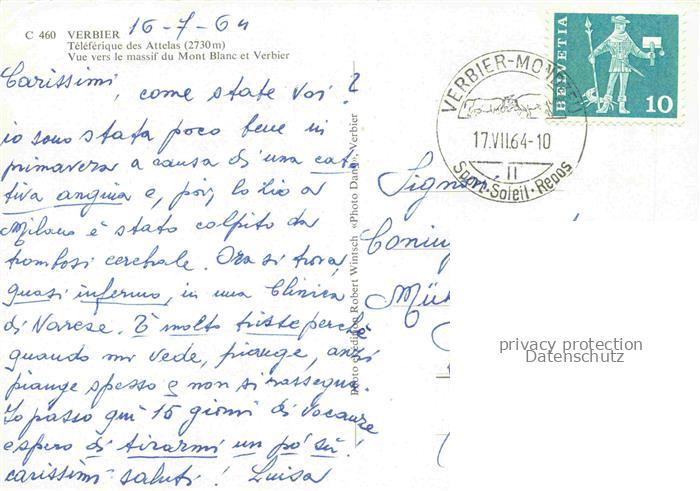 16-7-64
C 460 VERBIER
Téléférique des Attelas (2730 m)
Vue vers le massif du Mont Blanc et Verbier
Carissimi,
come state voi?
io sono stata poco bene in
primavera a causa di una cat
tiva angina e, poi, lo zio a
Milano è stato colpito da
trombosi cerebrale. Ora si trova,
quasi infermo, in una Clinica
di Varese. È molto triste perchè
quando mi vede, piange, anzi
piange spesso e non si rassegna.
Io passo quì 15 giorni di vacanze
espero di tirarmi un po' sù.
carissimi saluti! Luisa
Photo et édition Robert Wintsch «Photo Dany», Verbier
VERBIER-MON
17.VII.64-10
II
Sport·Soleil·Repos
HELVETIA
10
Signori
Coniug
Mü
privacy protection
Datenschutz